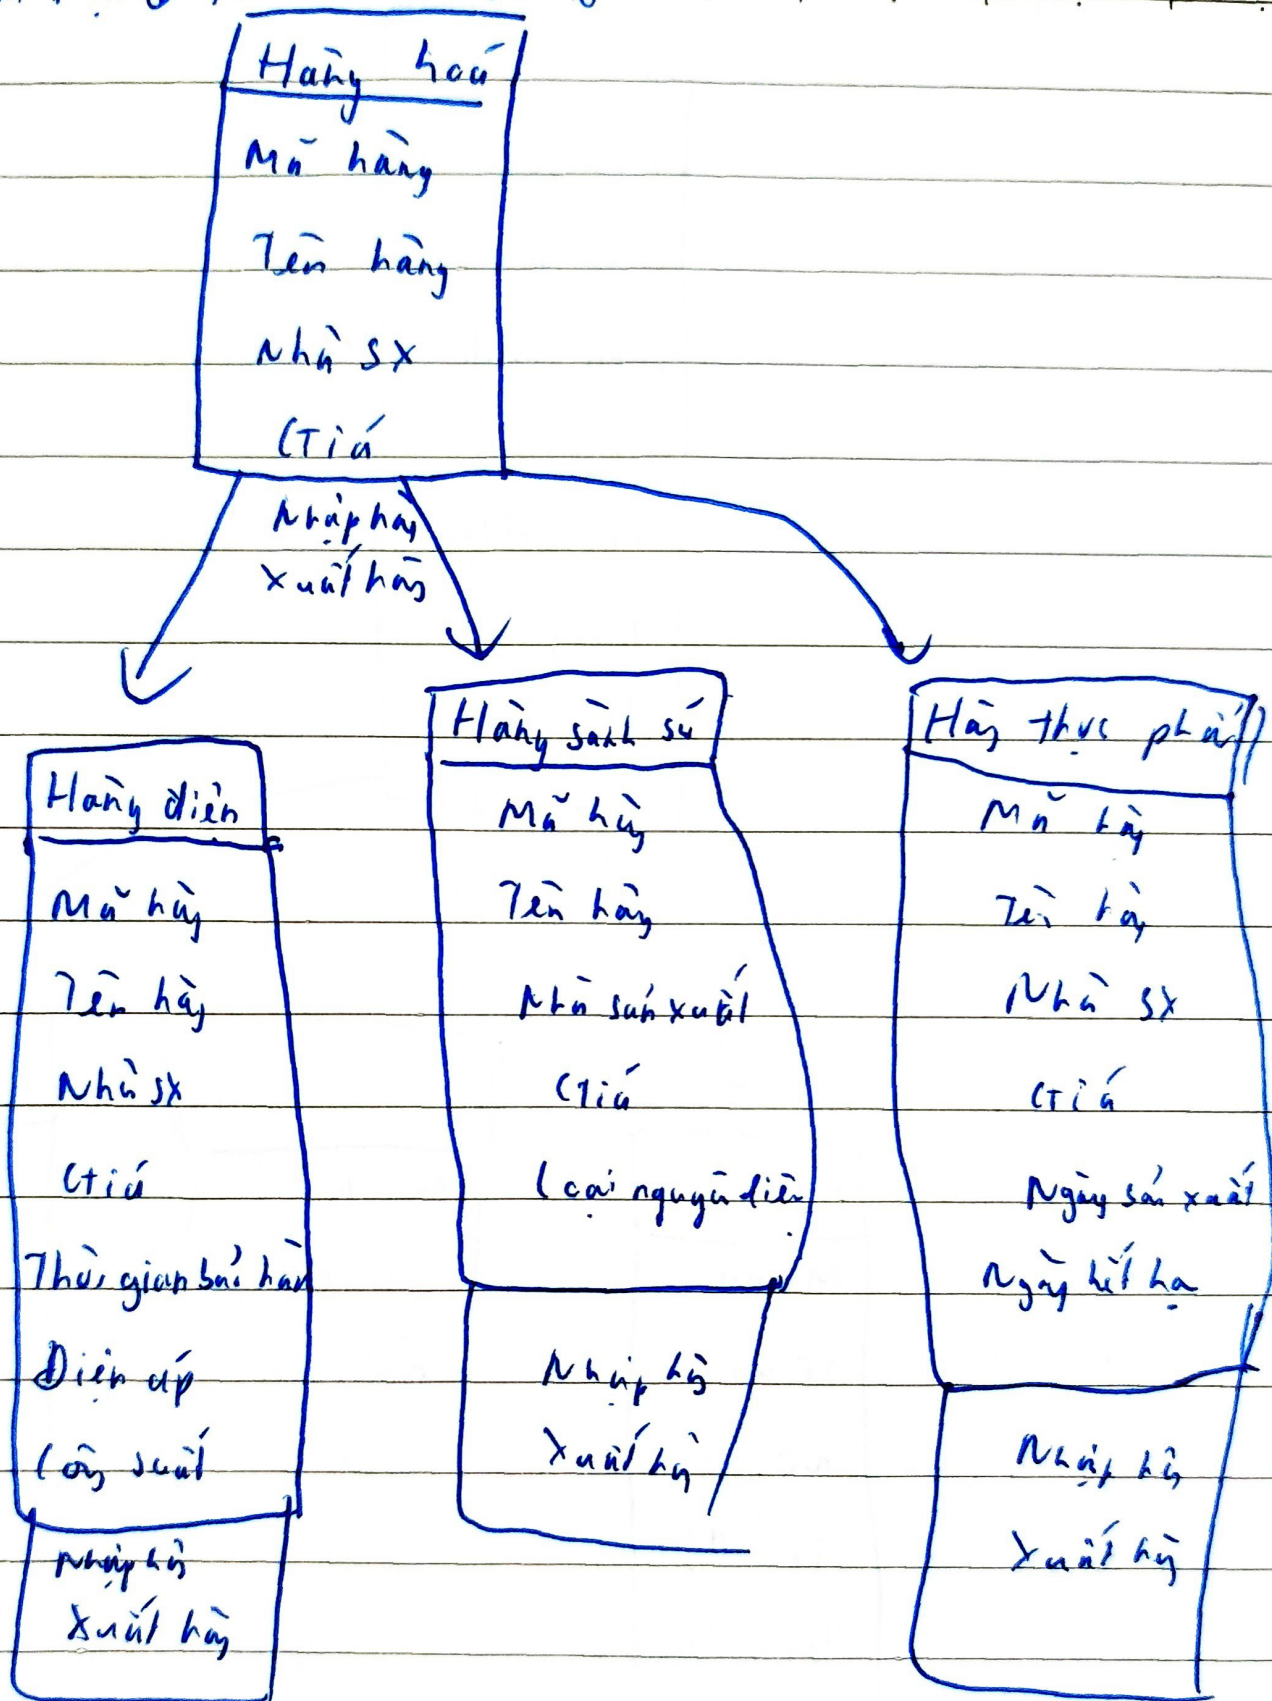 Hàng hoá
Mã hàng
Tên hàng
Nhà sx
Giá
Nhập hàng
Xuất hàng
Hàng điện
Mã hàng
Tên hàng
Nhà sx
Giá
Thời gian bảo hàn
Điện áp
Công suất
Nhập hàng
Xuất hàng
Hàng sành sứ
Mã hàng
Tên hàng
Nhà sản xuất
Giá
Loại nguyên
Nhập hàng
Xuất hàng
Hàng thực phẩm
Mã hàng
Tên hàng
Nhà sx
Giá
Ngày sản xuất
Ngày hết hạn
Nhập hàng
Xuất hàng